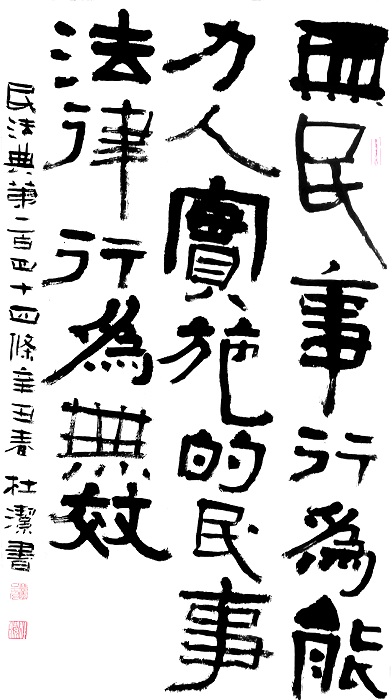 無民事行爲能
力人實施的民事
法律行爲無效
民法典第一百四十四條辛丑春 杜潔書